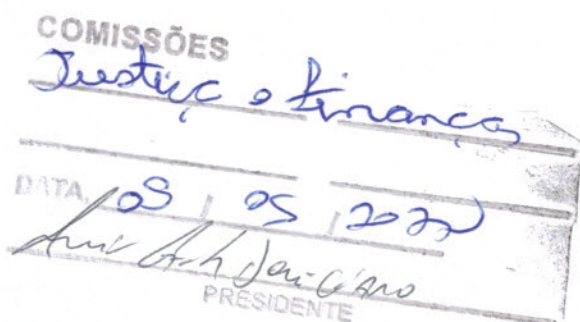 COMISSÕES
Justiça e Finanças
DATA, 05 / 05 / 2022
PRESIDENTE